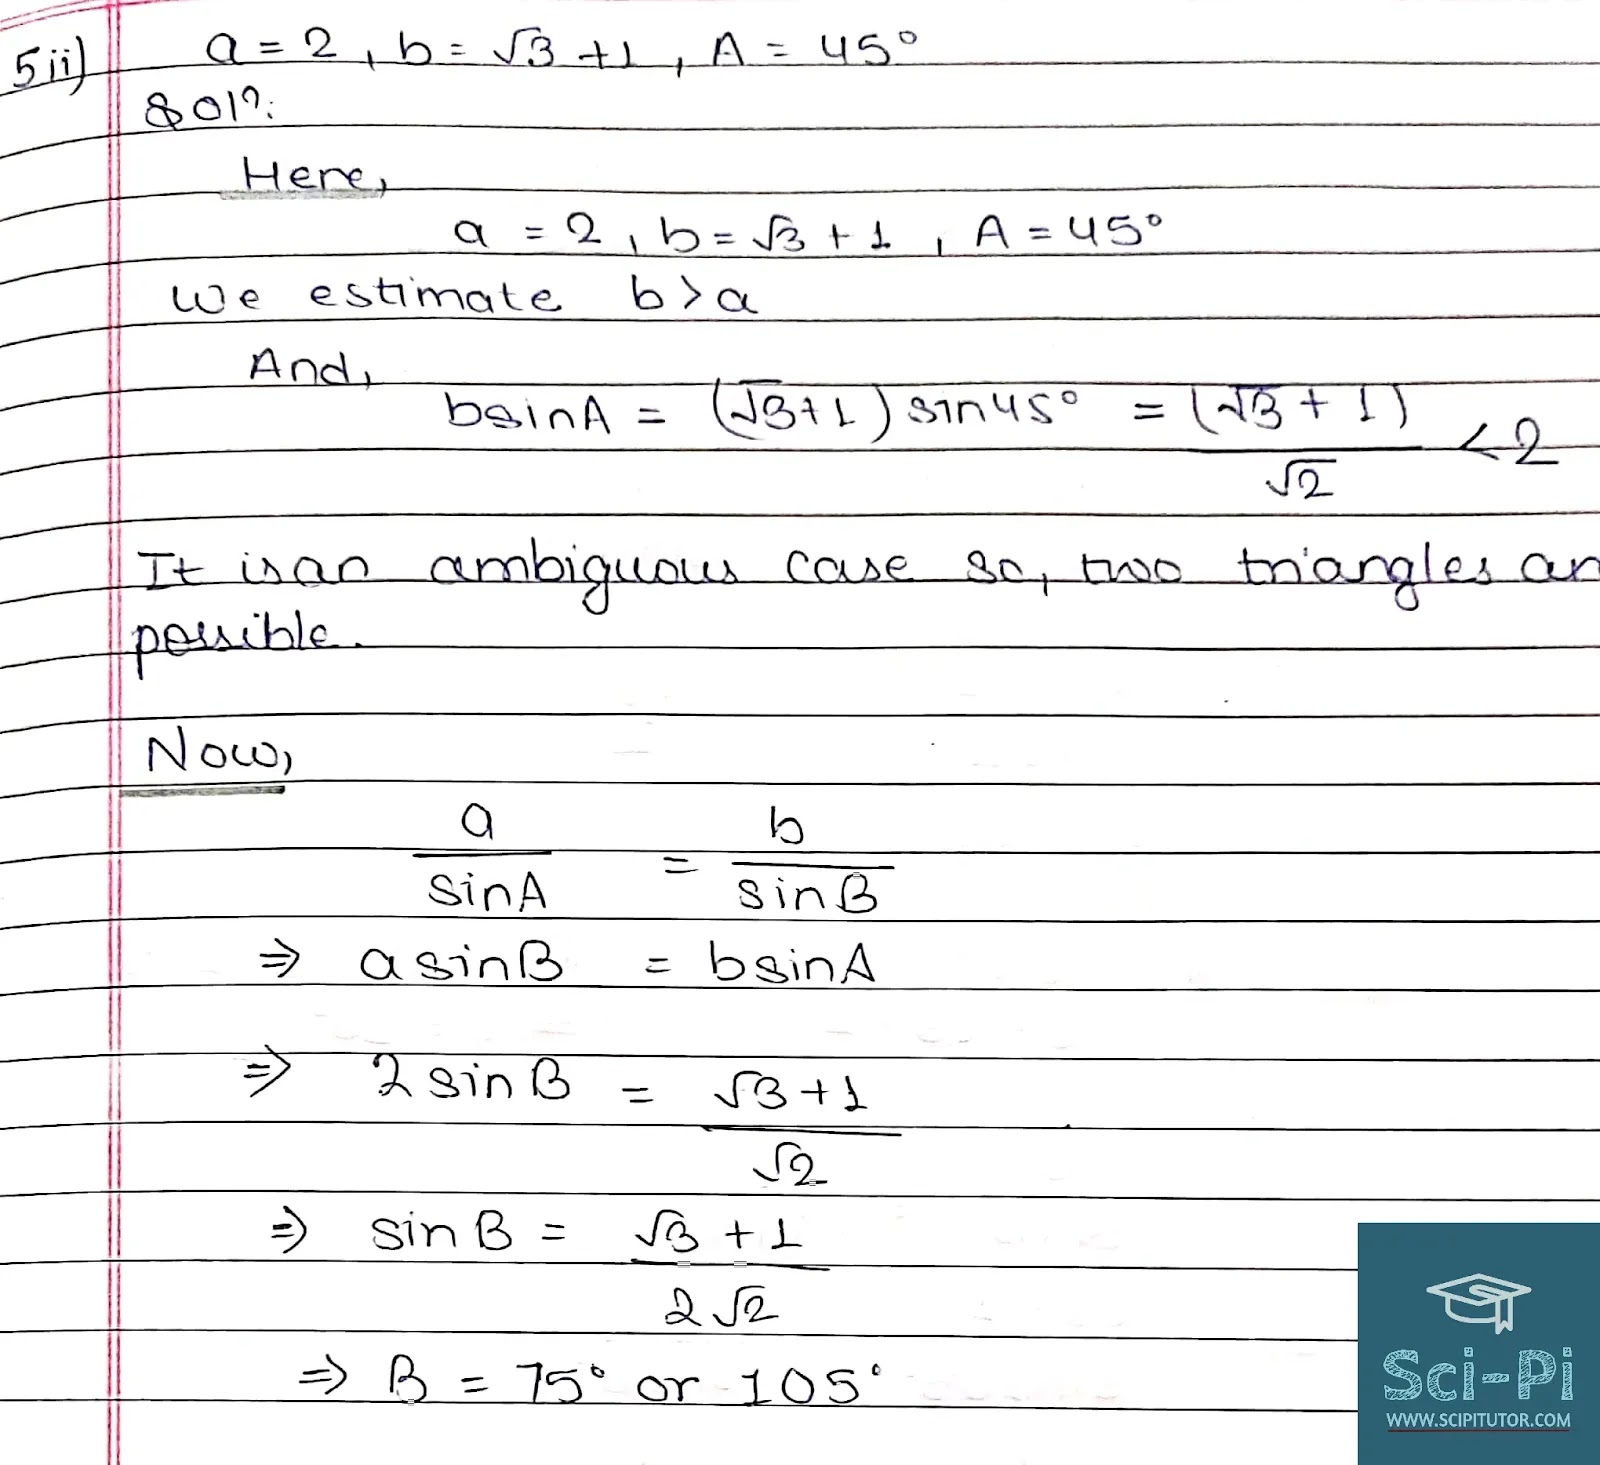 5ii) a = 2, b = √3 + 1, A = 45°
Solⁿ:
Here,
a = 2, b = √3 + 1, A = 45°
We estimate b > a
And,
bsinA = (√3+1) sin45° = (√3 + 1)/√2 < 2
It is an ambiguous case so, two triangles ar
possible.
Now,
a/sinA = b/sinB
⇒ asinB = bsinA
⇒ 2sinB = √3+1/√2
⇒ sinB = √3 + 1/2√2
⇒ B = 75° or 105°
Sci-Pi
WWW.SCIPITUTOR.COM